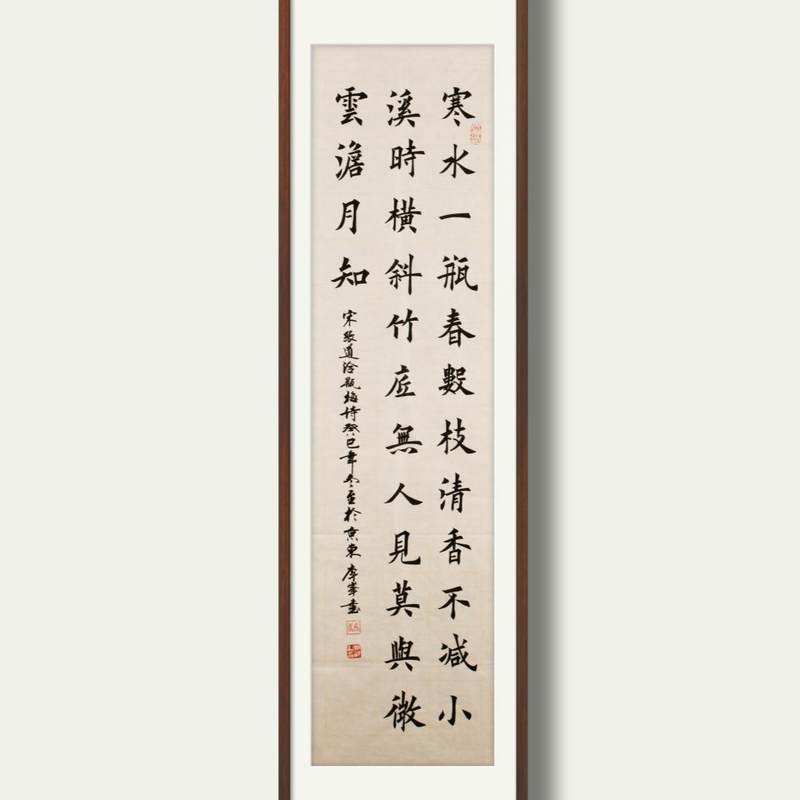 寒水一瓶春數枝清香不減小
溪時橫斜竹底無人見莫與微
雲澹月知
宋張道洽瓶梅詩癸巳年冬至於京東李峯書